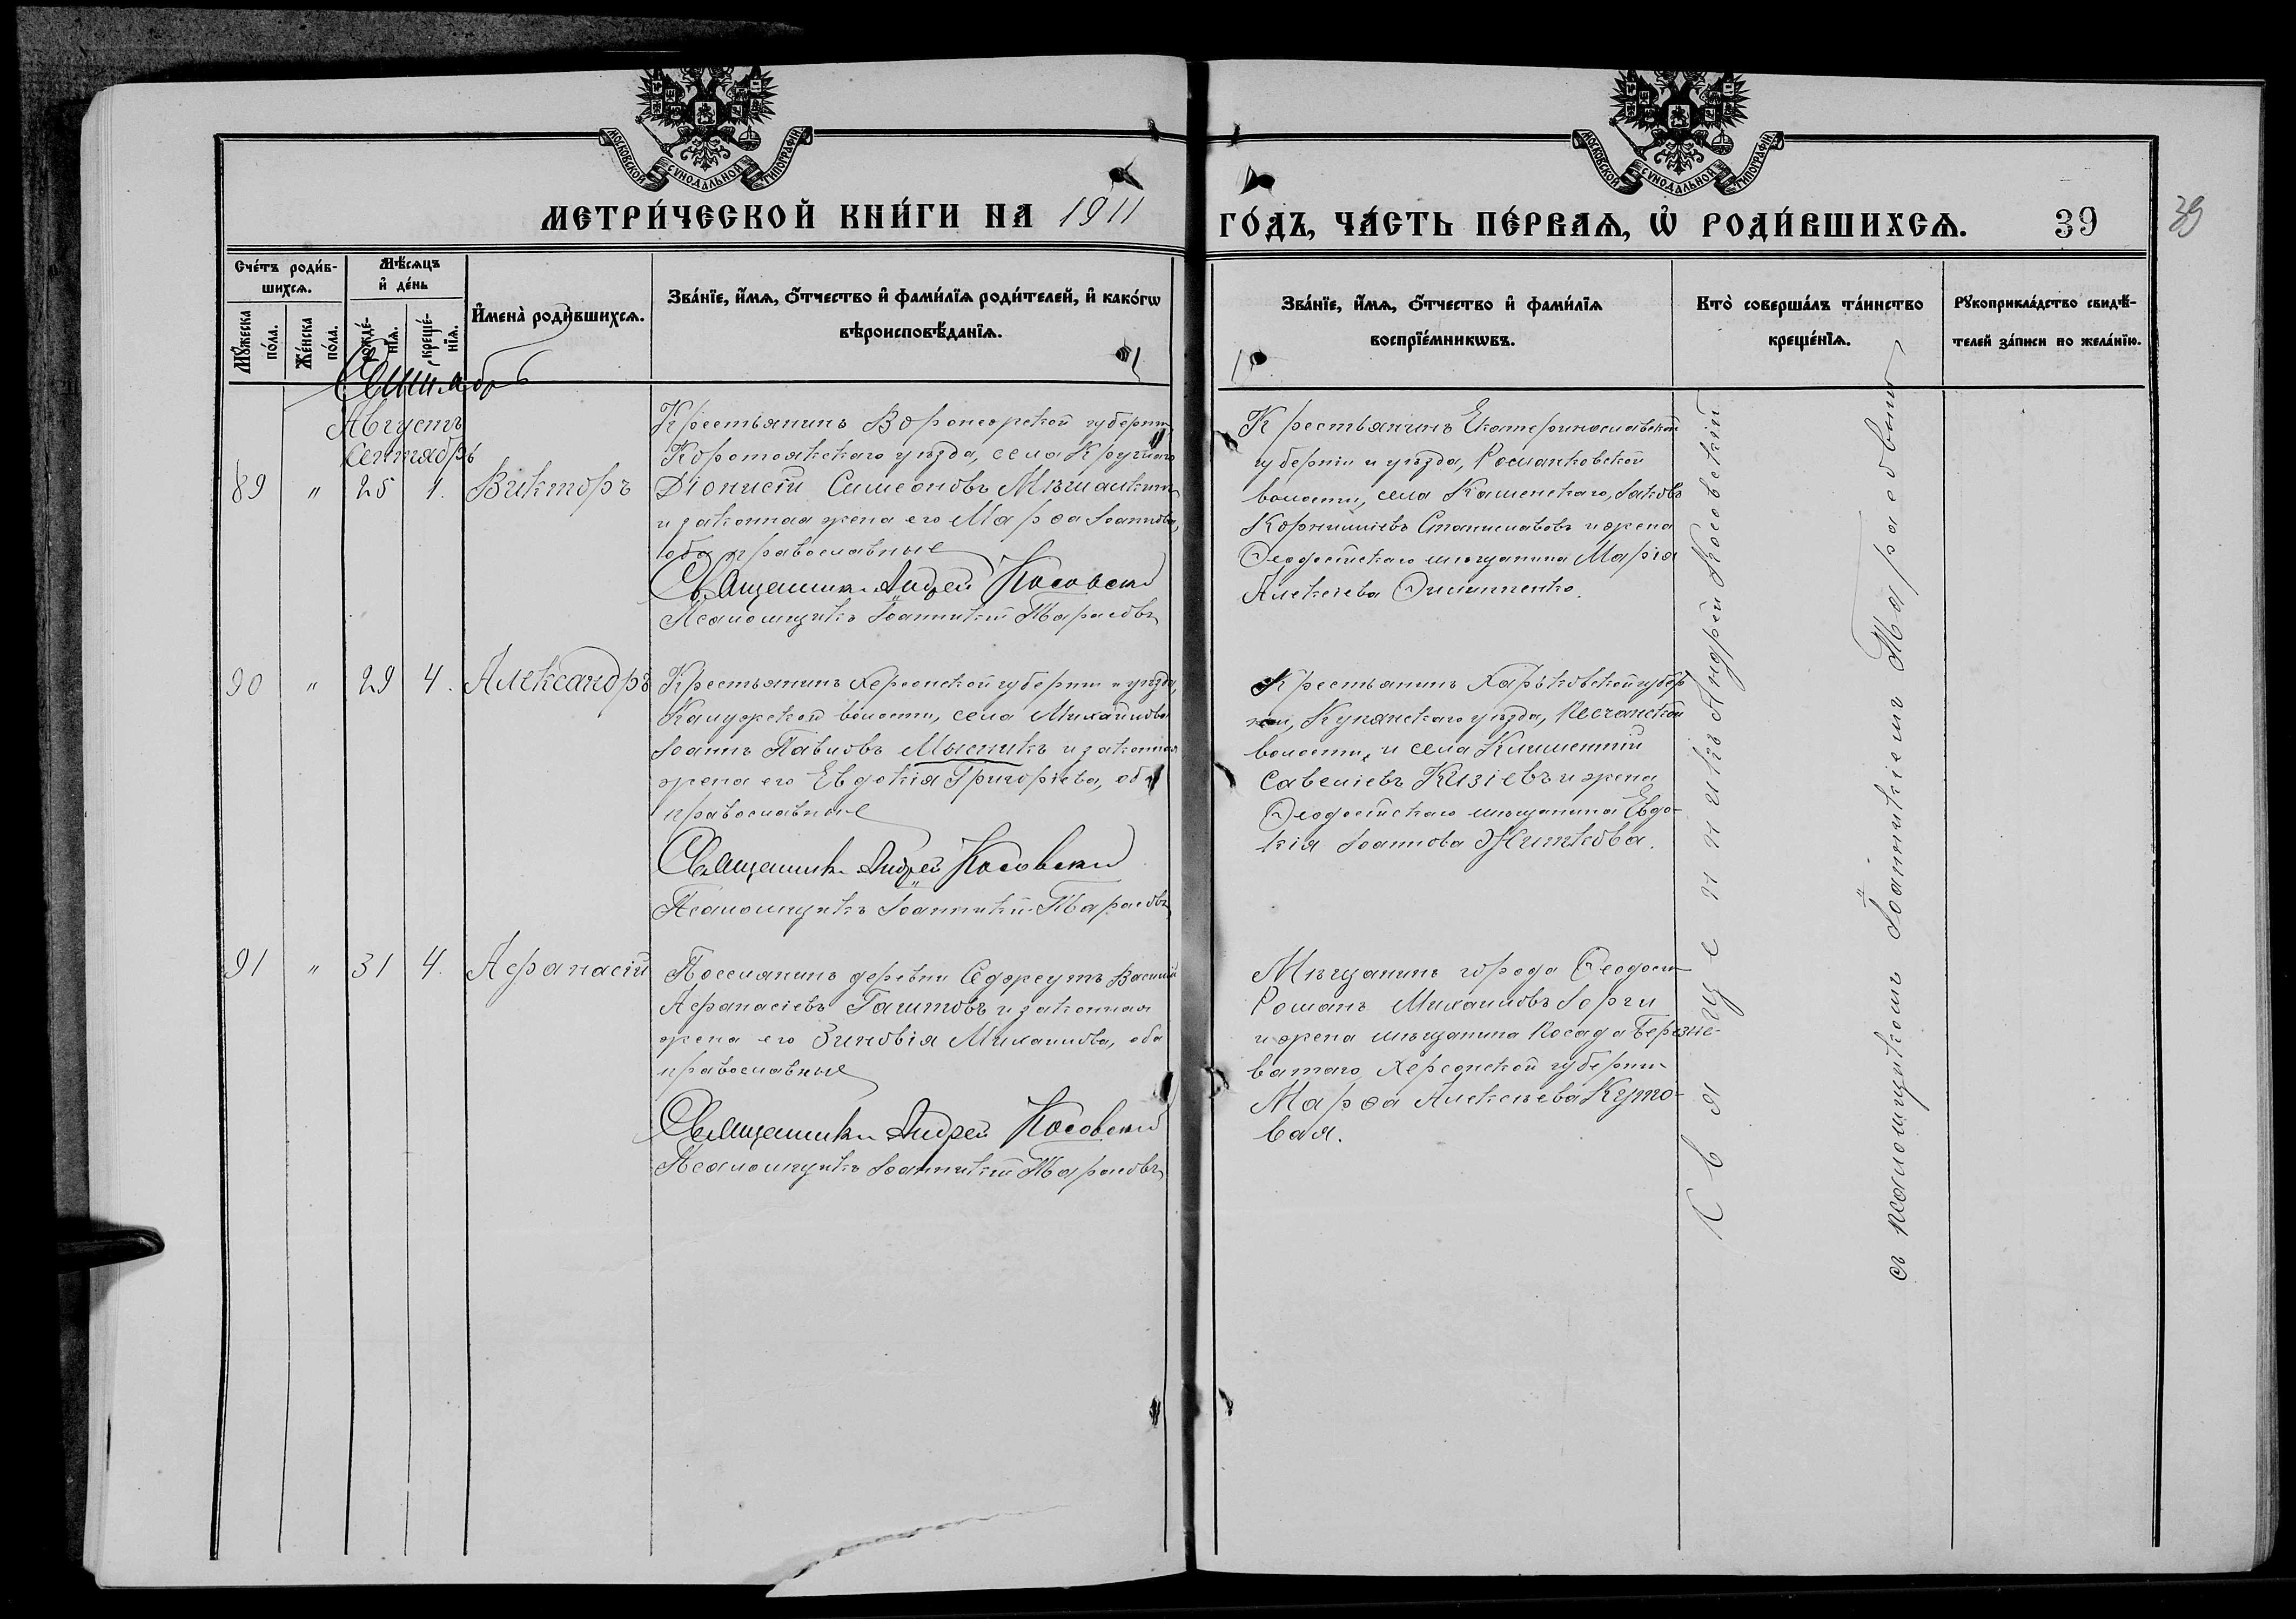 МОСКОВСКОЙ СѴНОДАЛЬНОЙ ТИПОГРАФІИ
МОСКОВСКОЙ СѴНОДАЛЬНОЙ ТИПОГРАФІИ
МЕТРИ́ЧЕСКОЙ КНИ́ГИ НА 1911
ГО́ДЪ, ЧА́СТЬ ПЕ́РВАѦ, Ѡ҆ РОДИ́ВШИХСѦ. 39
39
Сче́тъ роди́в-
шихсѧ.
Мꙋжеска по́ла.
Же́нска по́ла.
Мѣ́сѧцъ
и҆ де́нь
рожде́-
нїѧ.
креще́-
нїѧ.
И҆мена̀ роди́вшихсѧ.
Зва́нїе, и҆́мѧ, ѻ҆́тчество и҆ фами́лїѧ роди́телей, и҆ како́гѡ
вѣроисповѣ́данїѧ.
Зва́нїе, и҆́мѧ, ѻ҆́тчество и҆ фами́лїѧ
воспрїе́мникѡвъ.
Кто̀ соверша́лъ та́инство
креще́нїѧ.
Рꙋкоприкла́дство свидѣ́-
телей за́писи по жела́нїю.
Сентябрь
Августъ
Сентябрь
89 " 25 1. Викторъ
Крестьянинъ Воронежской губерніи
Коротоякскаго уѣзда, села Круглаго
Діонисій Симеоновъ
и законная жена его Марѳа Іоаннова,
оба православные
Священникъ Андрей Косовскій
Псаломщикъ Іоанникій Тарасовъ
Крестьянинъ Екатеринославской
губерніи и уѣзда, Романковской
волости, села Каменскаго, Іаковъ
Корниліевъ Станиславовъ и жена
Ѳеодосійскаго мѣщанина Марія
Алексіева Онишенко.
90 " 29 4. Александръ
Крестьянинъ Херсонской губерніи и уѣзда,
волости, села Михайловки
Іоаннъ Павловъ Мысникъ и законная
жена его Евдокія Григоріева, оба
православные
Священникъ Андрей Косовскій
Псаломщикъ Іоанникій Тарасовъ
Крестьянинъ Харьковской губер
ніи, Купянскаго уѣзда, Песчанской
волости, и села Климентій
Савеліевъ Кизіевъ и жена
Ѳеодосійскаго мѣщанина Евдо-
кія Іоаннова Житкова.
91 " 31 4. Аѳанасій
Поселянинъ деревни Седжеутъ Василій
Аѳанасіевъ Гашитовъ и законная
жена его Зиновія Михаилова, оба
православные
Священникъ Андрей Косовскій
Псаломщикъ Іоанникій Тарасовъ
Мѣщанинъ города Ѳеодосіи
Романъ Михаиловъ Іорги
и жена мѣщанина посада Березне-
ватаго Херсонской губерніи
Марѳа Алексѣева Куто-
вая.
Священникъ Андрей Косовскій
съ псаломщикомъ Іоанникіемъ Тарасовымъ